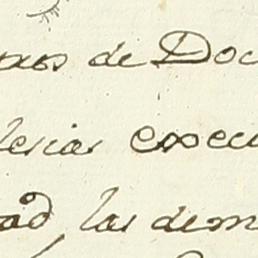 de Doc
lesias execu
ad, las dem